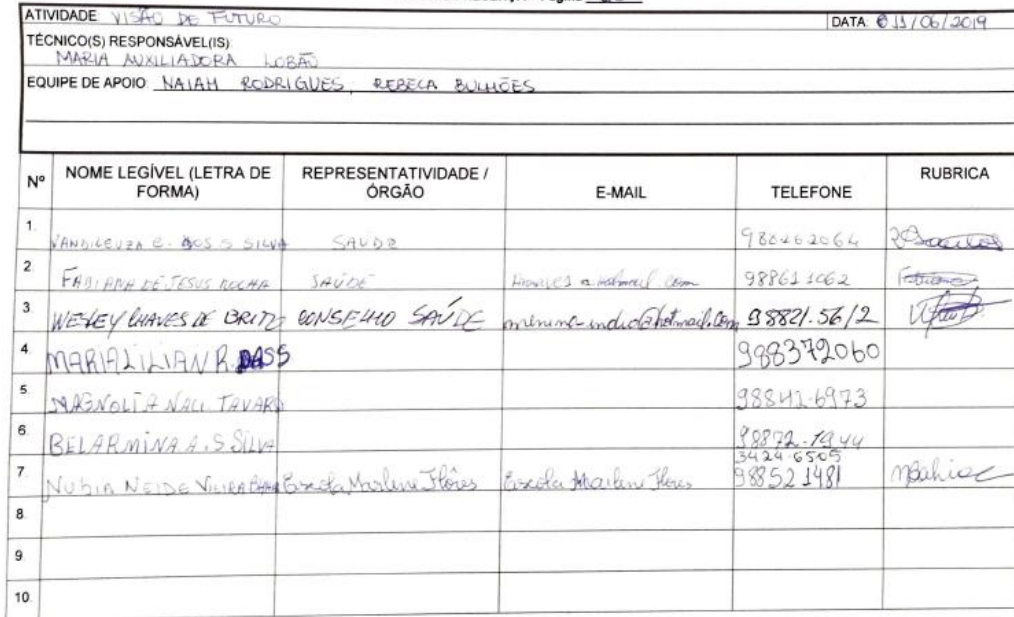 Página
ATIVIDADE VISÃO DE FUTURO DATA: 11/06/2019
TÉCNICO(S) RESPONSÁVEL(IS)
MARIA AUXILIADORA LOBÃO
EQUIPE DE APOIO: NAIAH RODRIGUES, REBECA BULHÕES
Nº NOME LEGÍVEL (LETRA DE FORMA) REPRESENTATIVIDADE / ÓRGÃO E-MAIL TELEFONE RUBRICA
1. VANDILEUZA C. DOS S SILVA SAUDE 980262064
2. FABIANA DE JESUS ROCHA SAÚDE @hotmail.com 988611062
3. WESLEY CHAVES DE BRITO CONSELHO SAÚDE menino-indio@hotmail.com 98821.5612
4. MARIA LILIAN R. 988372060
5. MAGNOLIA TAVARES 98842-6973
6. BELARMINA A. S SILVA 98872-1944
3424-6505
7. NUBIA NEIDE VIEIRA Escola Marlene Flôres Escola Marlene Flores 988521481 NBahia
8.
9.
10.